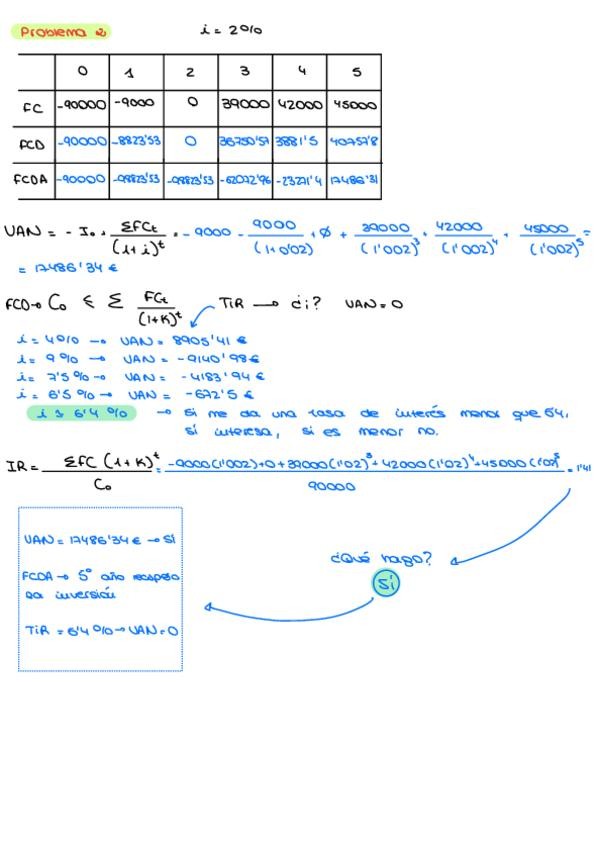 Problema 2 i = 2%
0 1 2 3 4 5
FC -90000 -9000 0 39000 42000 45000
FCD -90000 -8823'53 0 36750'57 3881'5 40757'8
FCDA -90000 -98823'53 -98823'53 -62072'96 -23271'4 17486'31
VAN = - I₀ + ΣFCt/(1+i)^t = -9000 - 9000/(1+0'02) + 0 + 39000/(1'002)³ + 42000/(1'002)⁴ + 45000/(1'002)⁵ =
= 17486'34 €
FCD → C₀ ≤ Σ FCt/(1+K)^t TiR → ci? VAN = 0
i = 4% → VAN = 8905'41 €
i = 9% → VAN = -9140'98 €
i = 7'5% → VAN = -4183'94 €
i = 6'5% → VAN = -672'5 €
i 6'4% → Si me da una tasa de interés menor que 64,
sí interesa, si es menor no.
IR = ΣFC (1+K)^t/C₀ = -9000(1'002)+0+39000(1'02)³+42000(1'02)⁴+45000(1'02)⁵/90000 = 1'41
VAN = 17486'34 € → Sí
¿Qué hago?
Sí
FCDA → 5º año recupero
la inversión
TiR = 6'4% → VAN = 0